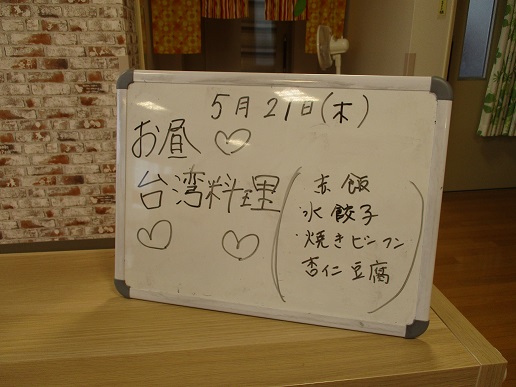 5月21日(木)
お昼♡
台湾料理
♡ ♡
(赤飯
水餃子
焼きビーフン
杏仁豆腐)